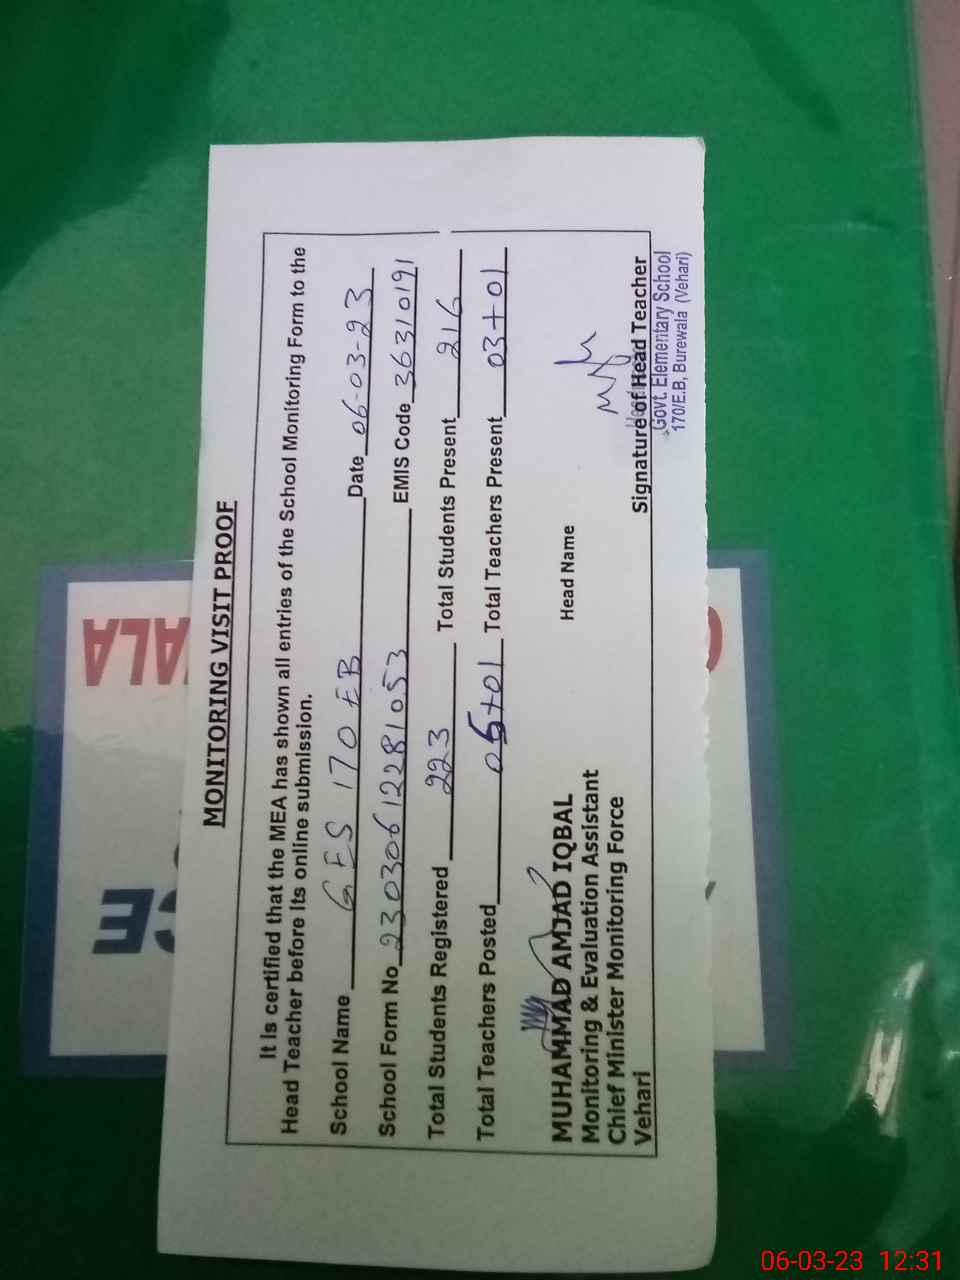 MONITORING VISIT PROOF
It is certified that the MEA has shown all entries of the School Monitoring Form to the
Head Teacher before its online submission.
School Name GES 170 EB Date 06-03-23
School Form No 23030612281053 EMIS Code 36310191
Total Students Registered 223 Total Students Present 216
Total Teachers Posted 05+01 Total Teachers Present 03+01
MUHAMMAD AMJAD IQBAL Head Name
Monitoring & Evaluation Assistant
Chief Minister Monitoring Force
Vehari Signature of Head Teacher
Govt. Elementary School
170/E.B, Burewala (Vehari)
ALA
CE
06-03-23 12:31